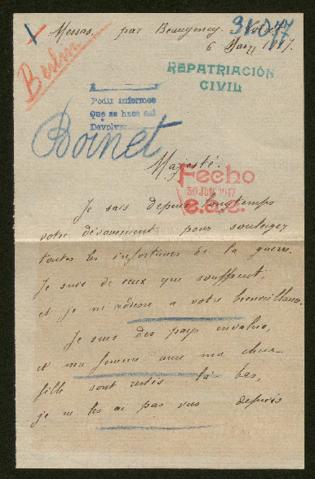 Messas, par Beaugency.
31047
6 Mars 1917.
Berlin
REPATRIACIÓN
CIVIL
Pedir informes
Que se hace del
Devolver
Boinet
Majesté.
Fecho
30 JUN 1917
Je sais depuis longtemps
votre dévouement pour soulager
toutes les infortunes de la guerre.
Je suis de ceux qui souffrent,
et je m'adresse a votre bienveillance.
Je suis des pays envahis,
et ma femme avec ma chère
fille sont restés là bas,
je ne les ai pas vus depuis